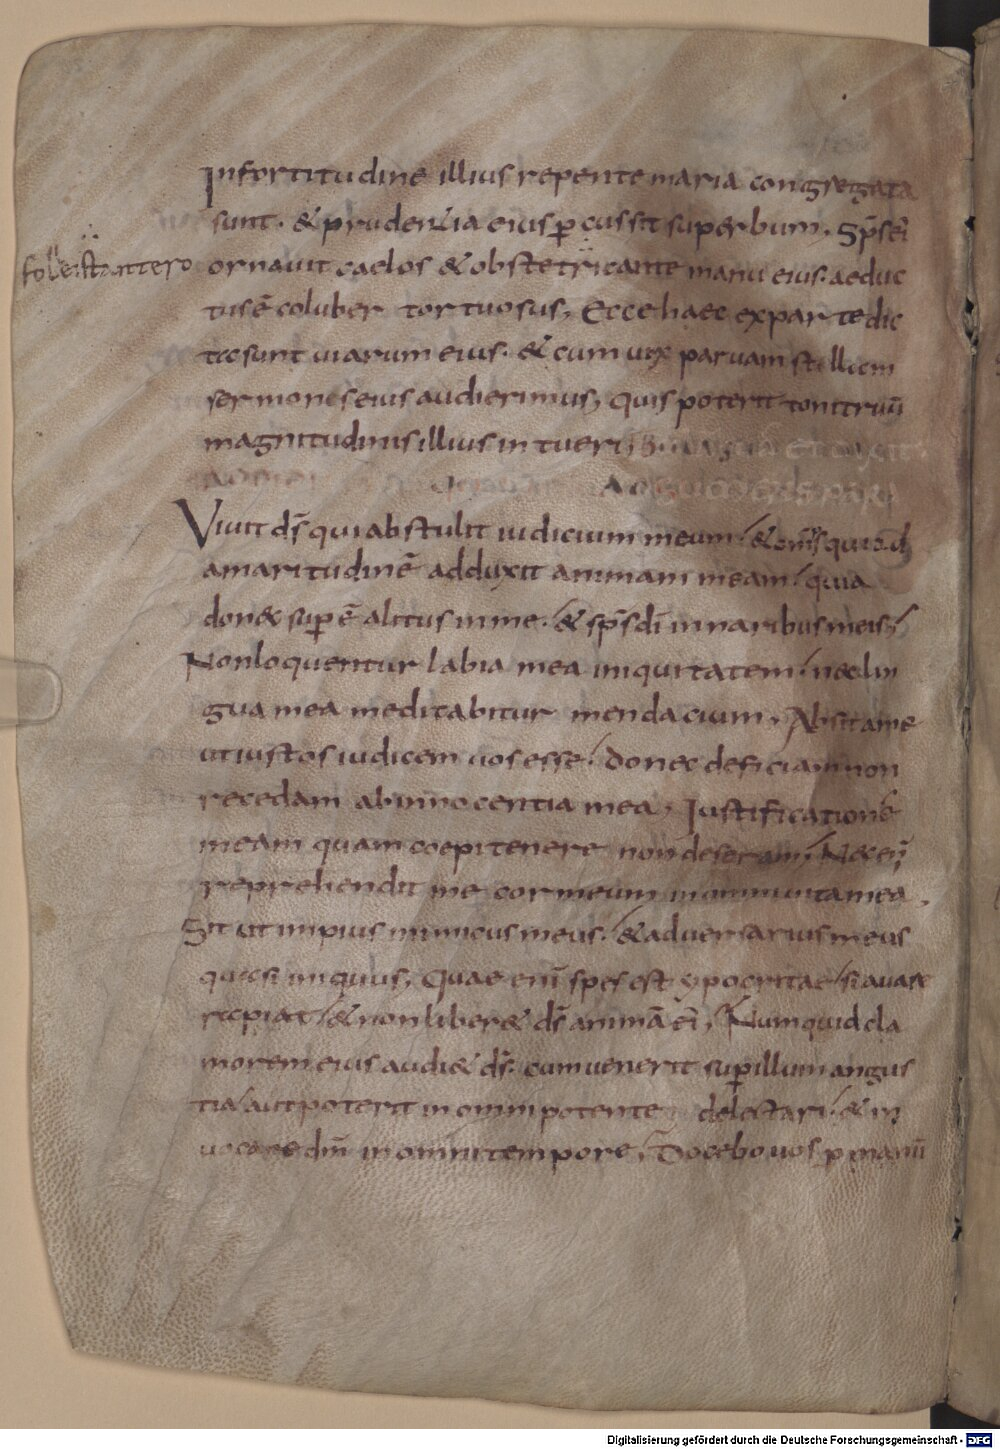 Infortitudine illius repente maria congregata
sunt. & prudentia eius ꝑcussit superbum. Sp̄s ei
follestantero
ornauit caelos & obstetricante manu eius. aeduc
tus ē coluber tortuosus, Ecce haec exparte dic
ta sunt uiarum eius. & cum uix paruam stillam
sermonis eius audierimus, quis poterit tonitruū
magnitudinis illius intueri;
Viuit ds̄ qui abstulit iudicium meum. & om̄ps qui ad
amaritudinē adduxit animam meam. quia
donec suꝑ ē alitus in me. & sp̄s dī in naribus meis;
Non loquentur labia mea iniquitatem. nec lin
gua mea meditabitur mendacium. Absit a me
ut iustos iudicem uos esse. donec deficiam non
recedam ab innocentia mea, Iustificationē
meam quam coepi tenere non deseram. Nec enī
reprehendit me cor meum in omni uita mea.
Sit ut impius inimicus meus. & aduersarius meus
quasi iniquus, Quae enī spes est ypocritae si auare
rapiat & non liber& ds̄ animā eī, Numquid cla
morem eius audi& ds̄. cum uenerit suꝑ illum angus
tia aut poterit in omnipotente delectari. & in
uocare dm̄ in omni tempore, Docebo uos ꝑ manū
Digitalisierung gefördert durch die Deutsche Forschungsgemeinschaft - DFG